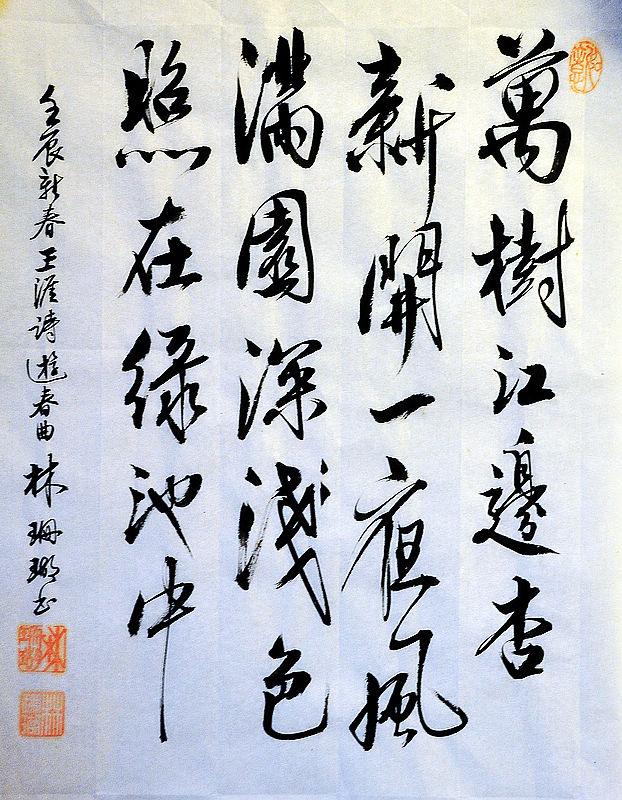 萬樹江邊杏
新開一夜風
滿園深淺色
照在綠池中
壬辰新春王涯詩遊春曲林珊瑚书